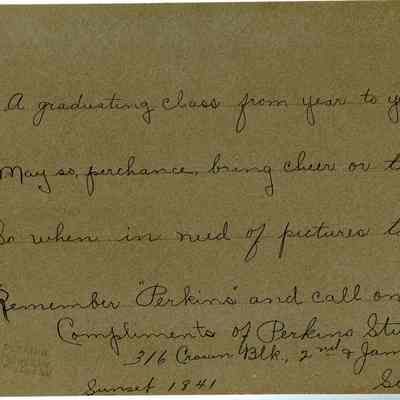 A graduating class from year to y
May so, perchance, bring cheer or t
So when in need of pictures t
Remember "Perkins" and call on
Compliments of Perkins Stu
316 Crown Blk, 2nd & Jam
Sunset 1841